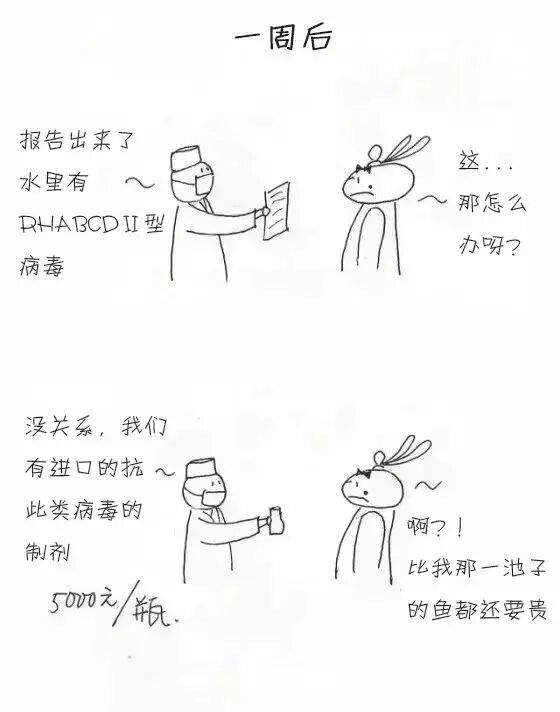 一周后
报告出来了
水里有
RHABCDII型
病毒
这...
那怎么
办呀?
没关系，我们
有进口的抗
此类病毒的
制剂
5000元/瓶.
啊?!
比我那一池子
的鱼都还要贵